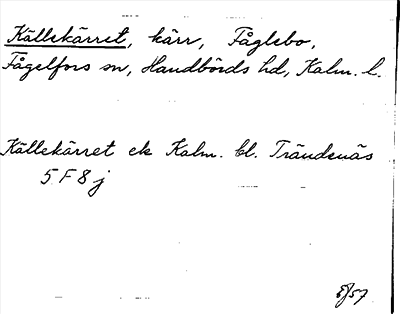 Källekärret, kärr, Fåglebo,
Fågelfors sn, Handbörds hd, Kalm. l.
Källekärret ek Kalm. bl. Trändenäs
5 F 8 j